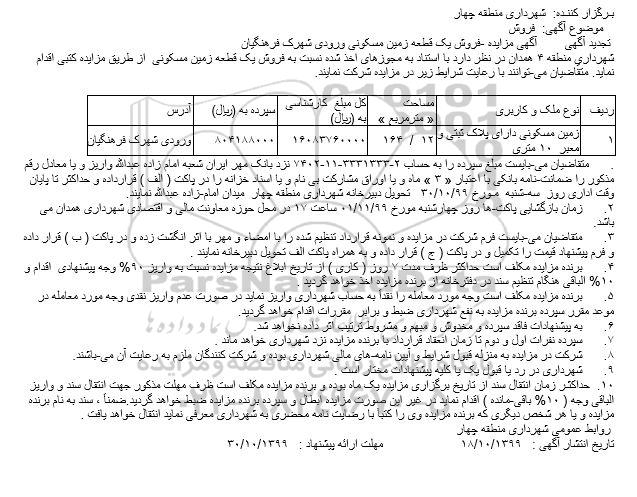 برگزار کننده: شهرداری منطقه چهار
موضوع آگهی: فروش
تجدید آگهی آگهی مزایده -فروش یک قطعه زمین مسکونی ورودی شهرک فرهنگیان
شهرداری منطقه ۴ همدان در نظر دارد با استناد به مجوزهای اخذ شده نسبت به فروش یک قطعه زمین مسکونی از طریق مزایده کتبی اقدام
نماید. متقاضیان می-توانند با رعایت شرایط زیر در مزایده شرکت نمایند.
ردیف نوع ملک و کاربری مساحت « مترمربع » کل مبلغ کارشناسی به (ریال) سپرده به (ریال) آدرس
۱ زمین مسکونی دارای پلاک ثبتی و معبر ۱۰ متری ۱۲ / ۱۶۴ ۱۶۰۸۳۷۶۰۰۰۰ ۸۰۴۱۸۸۰۰۰ ورودی شهرک فرهنگیان
۱. متقاضیان می-بایست مبلغ سپرده را به حساب ۲-۳۳۳۱۳۳۳-۱۱-۷۴۰۲ نزد بانک مهر ایران شعبه امام زاده عبدالله واریز و یا معادل رقم
مذکور را ضمانت-نامه بانکی با اعتبار « ۳ » ماه و یا اوراق مشارکت بی نام و یا اسناد خزانه را در پاکت ( الف ) قرارداده و حداکثر تا پایان
وقت اداری روز سه-شنبه مـورخ ۳۰/۱۰/۹۹ تحویل دبیرخانه شهرداری منطقه چهار میدان امام-زاده عبدالله نمایند.
۲. زمان بازگشایی پاکت-ها روز چهارشنبه مورخ ۰۱/۱۱/۹۹ ساعت ۱۷ در محل حوزه معاونت مالی و اقتصادی شهرداری همدان می
باشد.
۳. متقاضیان می-بایست فرم شرکت در مزایده و نمونه قرارداد تنظیم شده را با امضاء و مهر با اثر انگشت زده و در پاکت ( ب ) قرار داده
و فرم پیشنهاد قیمت را تکمیل و در پاکت ( ج ) قرار داده و به همراه پاکت الف تحویل دبیرخانه نمایند .
۴. برنده مزایده مکلف است حداکثر ظرف مدت ۷ روز ( کاری ) از تاریخ ابلاغ نتیجه مزایده نسبت به واریز ۹۰% وجه پیشنهادی اقدام و
۱۰% الباقی هنگام تنظیم سند در دفترخانه از برنده مزایده اخذ خواهد گردید .
۵. برنده مزایده مکلف است وجه مورد معامله را نقداً به حساب شهرداری واریز نماید در صورت عدم واریز نقدی وجه مورد معامله در
موعد مقرر سپرده برنده مزایده به نفع شهرداری ضبط و برابر مقررات اقدام خواهد گردید.
۶. به پیشنهادات فاقد سپرده و مخدوش و مبهم و مشروط ترتیب اثر داده نخواهد شد.
۷. سپرده نفرات اول و دوم تا زمان انعقاد قرارداد با برنده مزایده نزد شهرداری خواهد ماند .
۸. شرکت در مزایده به منزله قبول شرایط و آیین نامه-های مالی شهرداری بوده و شرکت کنندگان ملزم به رعایت آن می-باشند.
۹. شهرداری در رد یا قبول یک یا کلیه پیشنهادات مختار است .
۱۰. حداکثر زمان انتقال سند از تاریخ برگزاری مزایده یک ماه بوده و برنده مزایده مکلف است ظرف مهلت مذکور جهت انتقال سند و واریز
الباقی وجه ( ۱۰% باقی-مانده ) اقدام نماید در غیر این صورت مزایده ابطال و سپرده برنده مزایده ضبط خواهد گردید.ضمناً ، سند به نام برنده
مزایده و یا هر شخص دیگری که برنده مزایده وی را کتباً با رضایت نامه محضری به شهرداری معرفی نماید انتقال خواهد یافت .
روابط عمومی شهرداری منطقه چهار
تاریخ انتشار آگهی : ۱۸/۱۰/۱۳۹۹ مهلت ارائه پیشنهاد : ۳۰/۱۰/۱۳۹۹